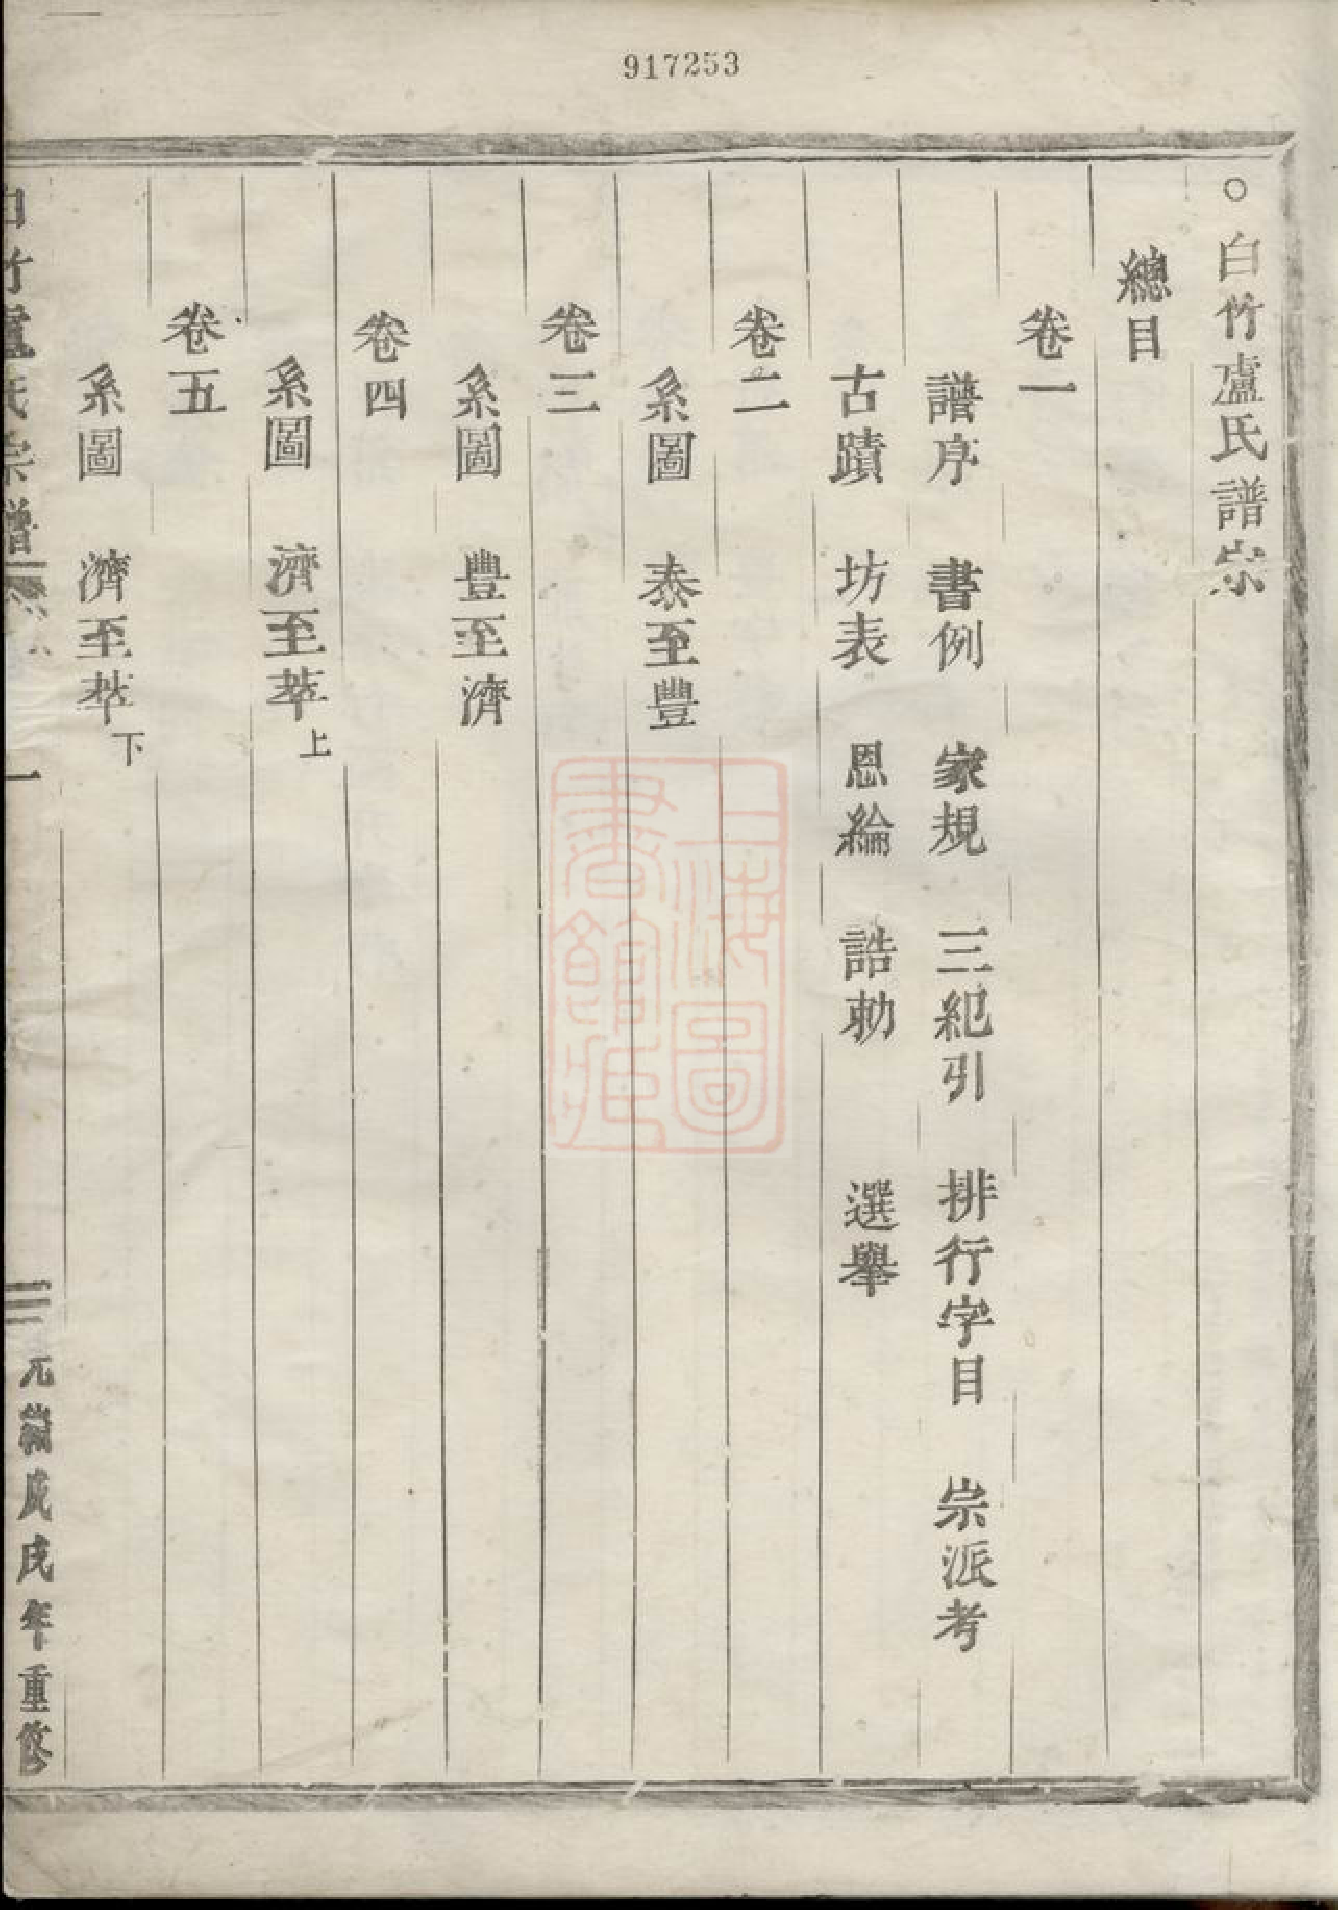 917253
○白竹盧氏譜宗
總目
卷一
譜序 書例 家規 三紀引 排行字目 宗派考
古蹟 坊表 恩綸 誥勅 選舉
卷二
系圖 泰至豐
卷三
系圖 豐至濟
卷四
系圖 濟至萃上
卷五
系圖 濟至萃下
白竹盧氏宗譜 一 元 戊戌年重修
上海圖書館藏